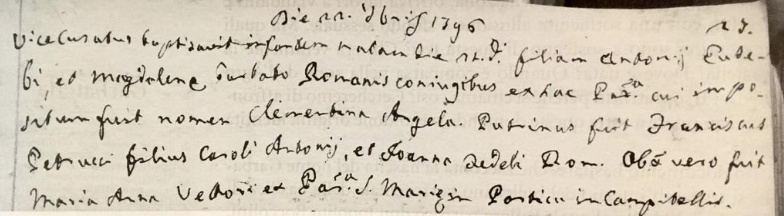 Die 22. 8bris 1796 23.
Vicecuratus baptizavit infantem natam die 21. d. filiam Antonij Eude-
bi, et Magdalena Barbato Romanis coniugibus ex hac Par.a cui impo-
situm fuit nomen Clementina Angela. Patrinus fuit Franciscus
Petrucci filius Caroli Antonij, et Joanna Rom. Obs vero fuit
Maria Anna ex Par.a S. Mariae in Porticu in Campitellis.